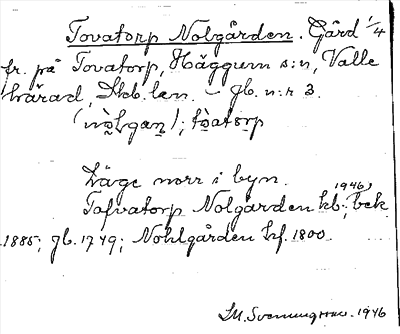 Tovatorp Nolgården. Gård 1/4
fr. på Tovatorp, Häggum s:n, Valle
härad, Skb. län. – Jb. n:r 3.
(nòlgan); tòatorp
Läge norr i byn.
Tofvatorp Nolgården kb. 1946, bek.
1885; Jb. 1749; Nohlgården hf. 1800.
1946